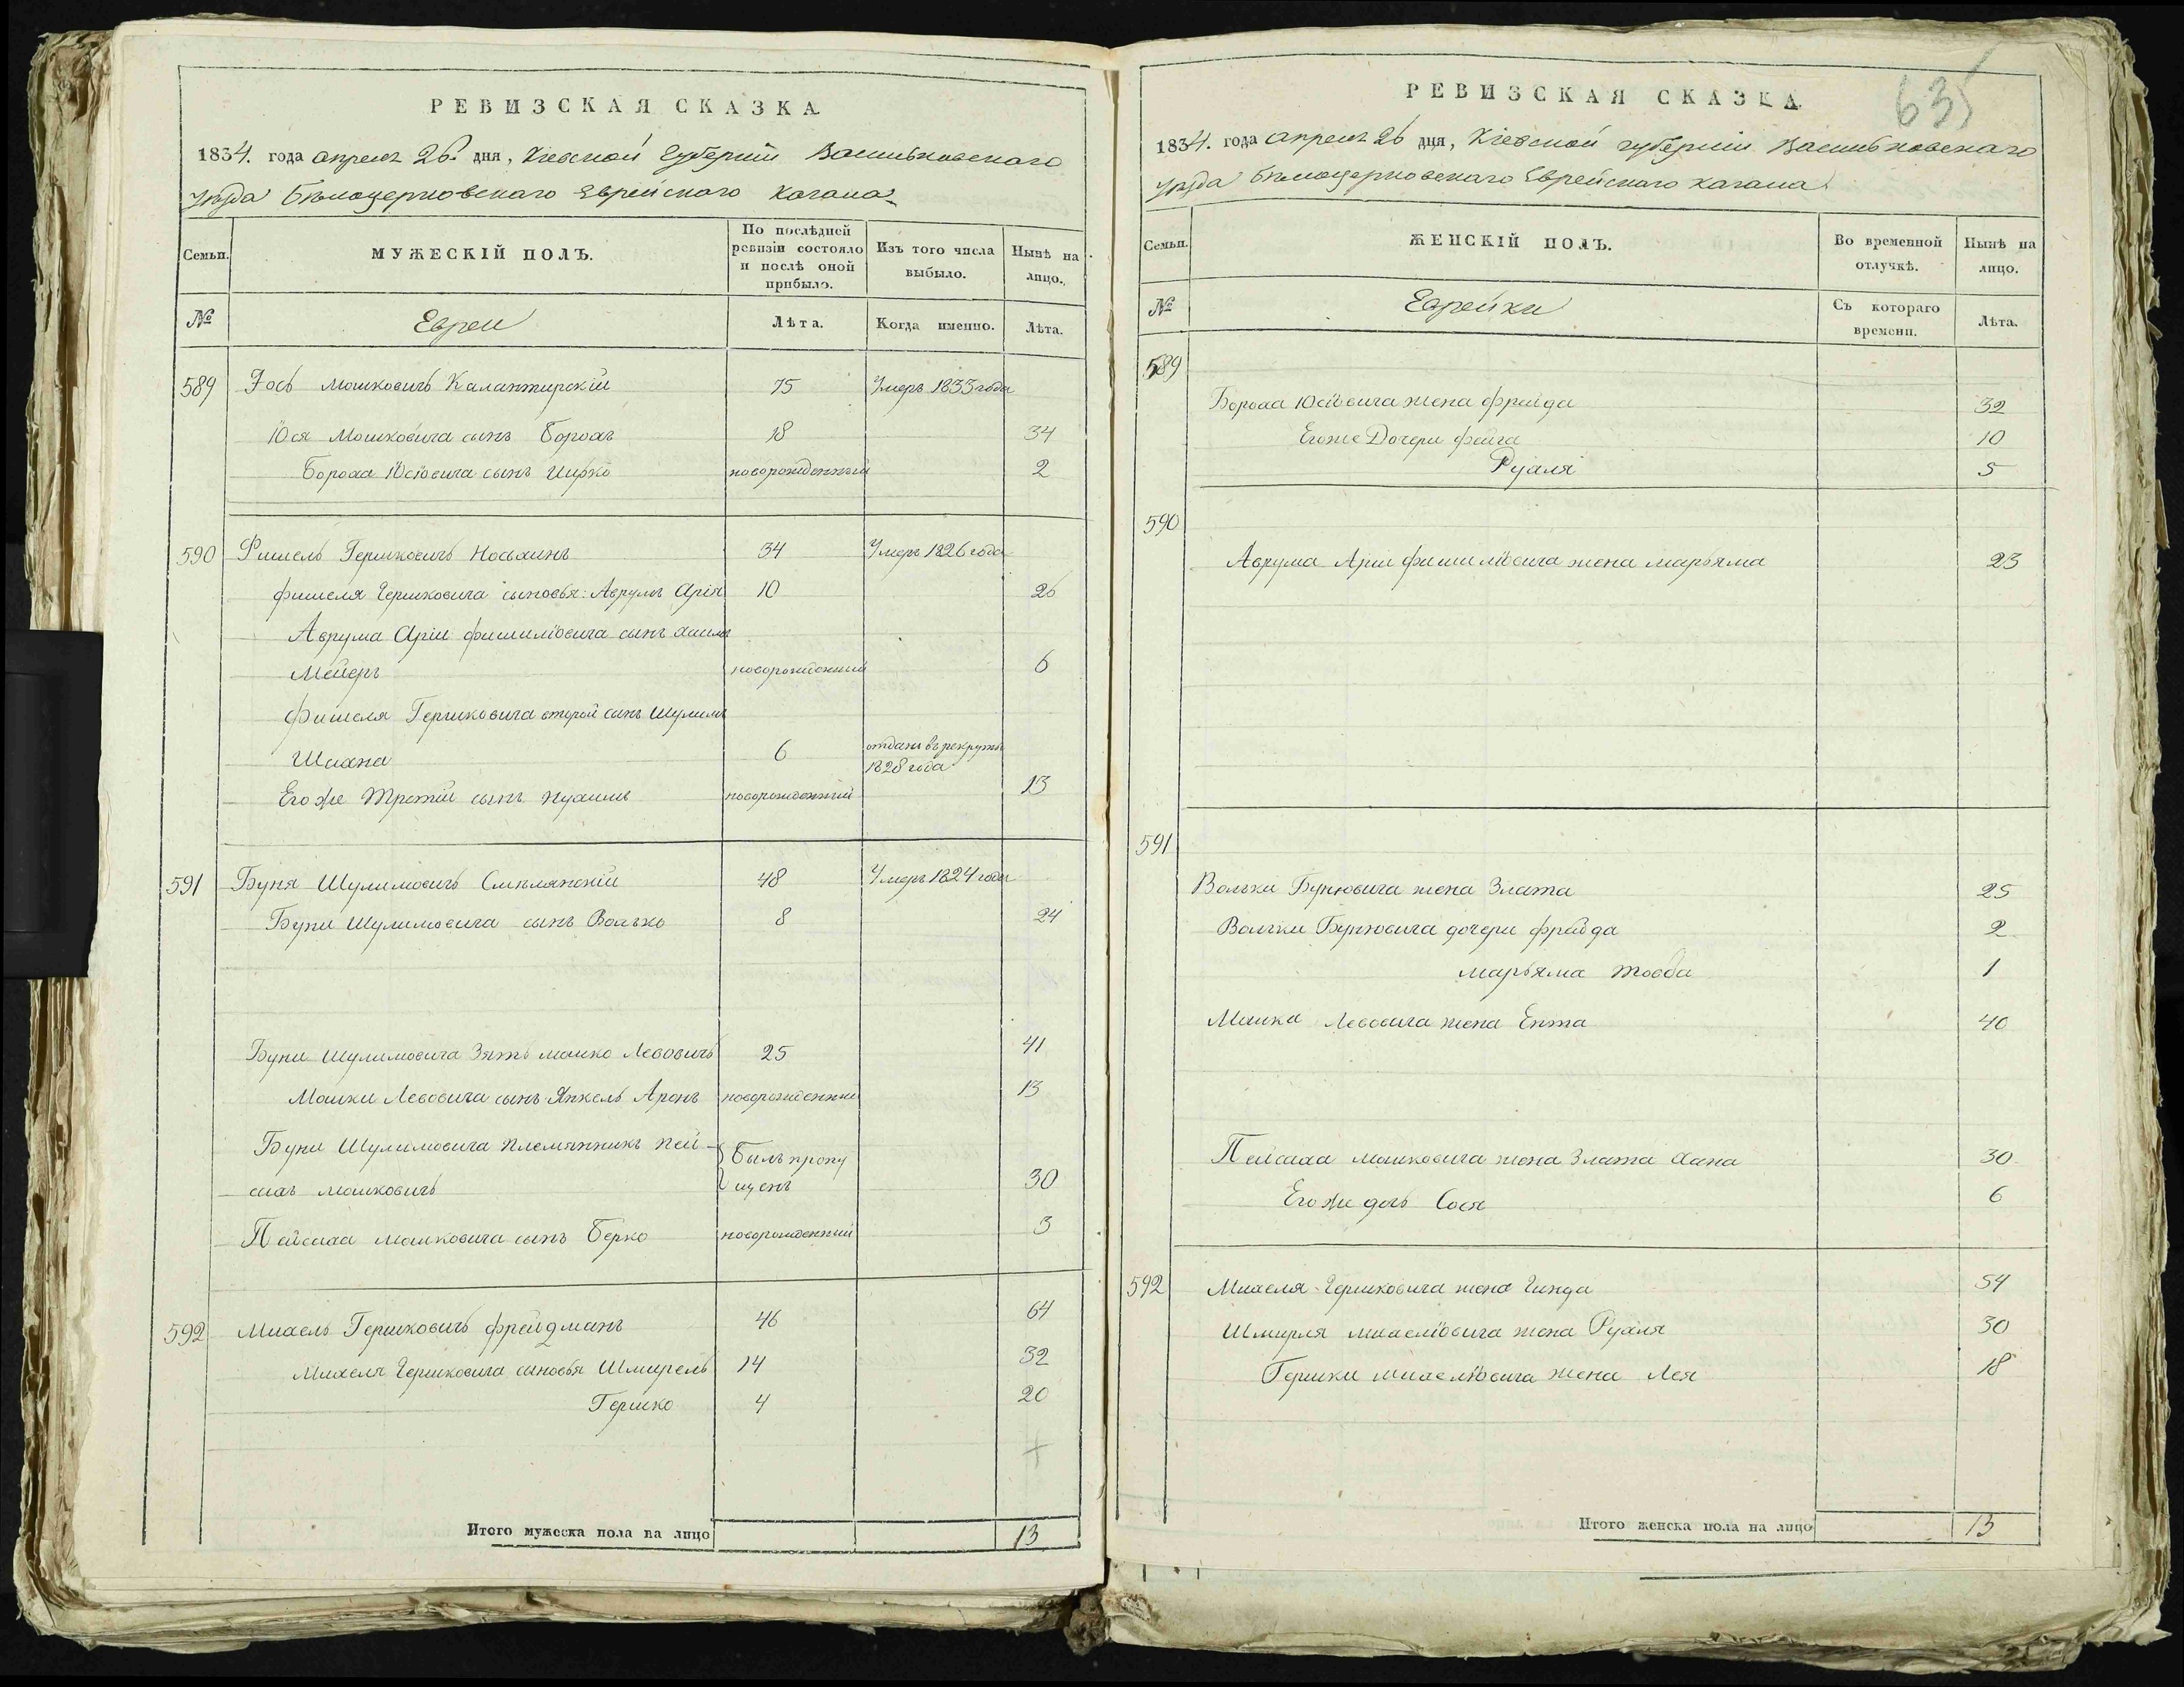 РЕВИЗСКАЯ СКАЗКА
1834. года апреля 26. дня, Кіевской Губерніи Васильковскаго
уѣзда Бѣлоцерковскаго Еврейскаго Кагала
Семьи.
МУЖЕСКІЙ ПОЛЪ.
По послѣдней
ревизіи состояло
и послѣ оной
прибыло.
Изъ того числа
выбыло.
Нынѣ на
лицо.
№
Евреи
Лѣта.
Когда именно.
Лѣта.
589 Іось Мошковичъ Калантирскій 75 Умеръ 1833 года
Іося Мошковича сынъ Борохъ 18 34
Бороха Іосіовича сынъ Ицко новорожденный 2
590 Фишель Гершковичъ Носыхинъ 34 Умеръ 1826 года
Фишеля Гершковича сыновья: Аврумъ Арія 10 26
Аврума Аріи Фишиліовича сынъ Хаимъ
Мейеръ новорожденный 6
Фишеля Гершковича второй сынъ Шулимъ
Шахна 6 отданъ въ рекруты
1828 года
Его же Третій сынъ Нухимъ новорожденный 13
591 Буня Шулимовичъ Смилянскій 48 Умеръ 1824 года
Буни Шулимовича сынъ Волько 8 24
Буни Шулимовича Зять Мошко Левовичъ 25 41
Мошки Левовича сынъ Янкель Аронъ новорожденный 13
Буни Шулимовича Племянникъ Пей- Былъ пропу
сахъ Мошковичъ щенъ 30
Пейсаха Мошковича сынъ Берко новорожденный 3
592 Михель Гершковичъ Фрейдманъ 46 64
Михеля Гершковича сыновья Шмирель 14 32
Гершко 4 20
Итого мужеска пола на лицо 13
635
РЕВИЗСКАЯ СКАЗКА.
1834. года апреля 26 дня, Кіевской губерніи Васильковскаго
уѣзда Бѣлоцерковскаго Еврейскаго Кагала
Семьи.
ЖЕНСКІЙ ПОЛЪ.
Во временной
отлучкѣ.
Нынѣ на
лицо.
№
Еврейки
Съ котораго
времени.
Лѣта.
589
Бороха Іосіовича жена Фрайда 32
Его же Дочери Фейга 10
Рухля 5
590
Аврума Аріи Фишиліовича жена Марьяма 23
591
Вольки Бунювича жена Злата 25
Вольки Бунювича дочери Фрайда 2
Марьяма Товба 1
Мошки Левовича жена Ента 40
Пейсаха Мошковича жена Злата Хана 30
Его же дочь Сося 6
592 Михеля Гершковича жена Гинда 54
Шмирля Михеліовича жена Рухля 30
Гершки Михеліовича жена Лея 18
Итого женска пола на лицо 13